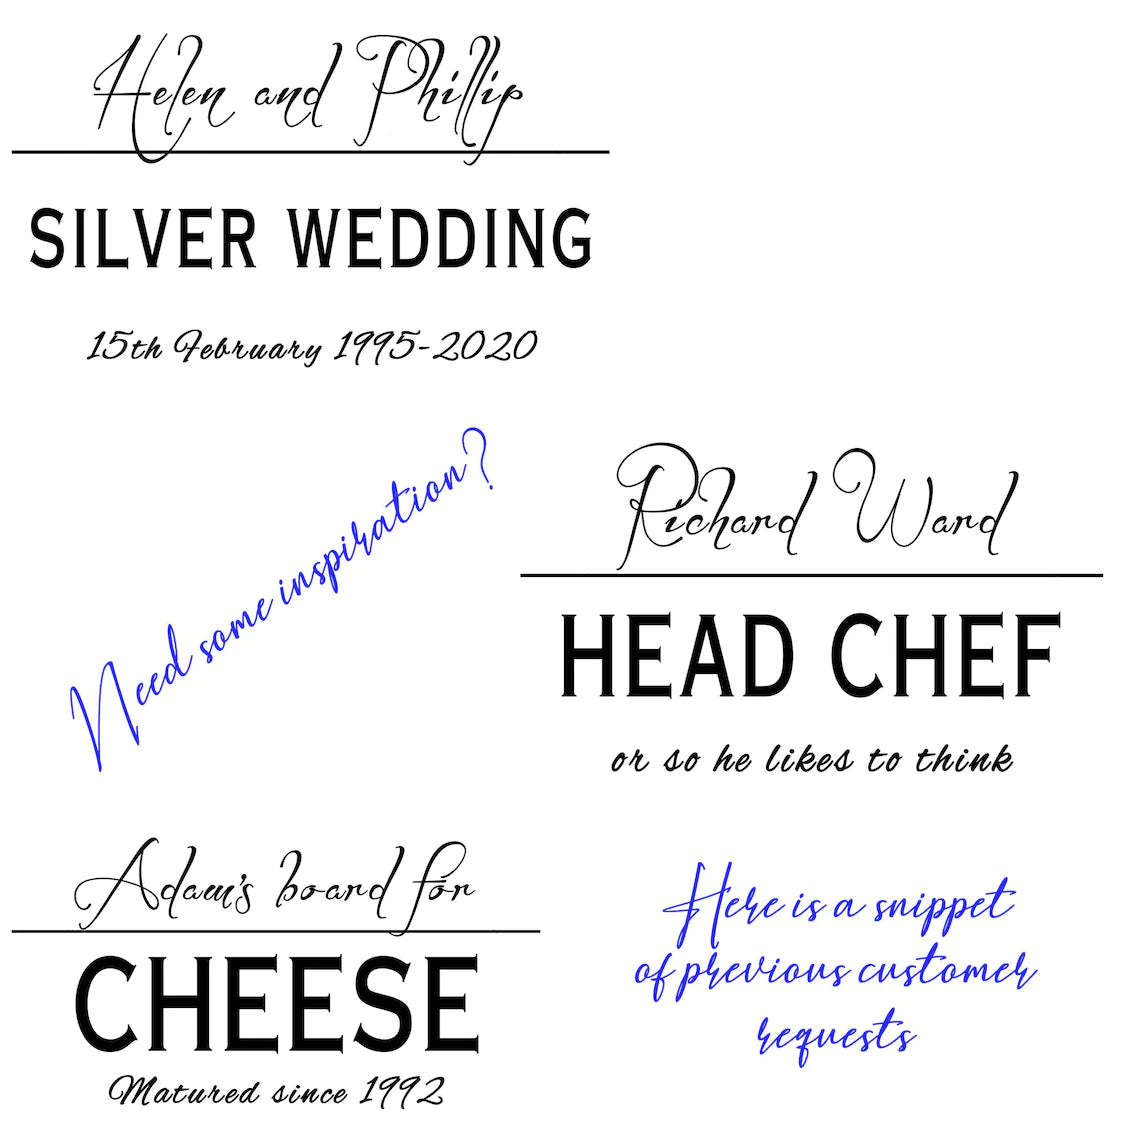 Helen and Phillip
SILVER WEDDING
15th February 1995-2020
Need some inspiration?
Richard Ward
HEAD CHEF
or so he likes to think
Adam's board for
CHEESE
Matured since 1992
Here is a snippet
of previous customer
requests